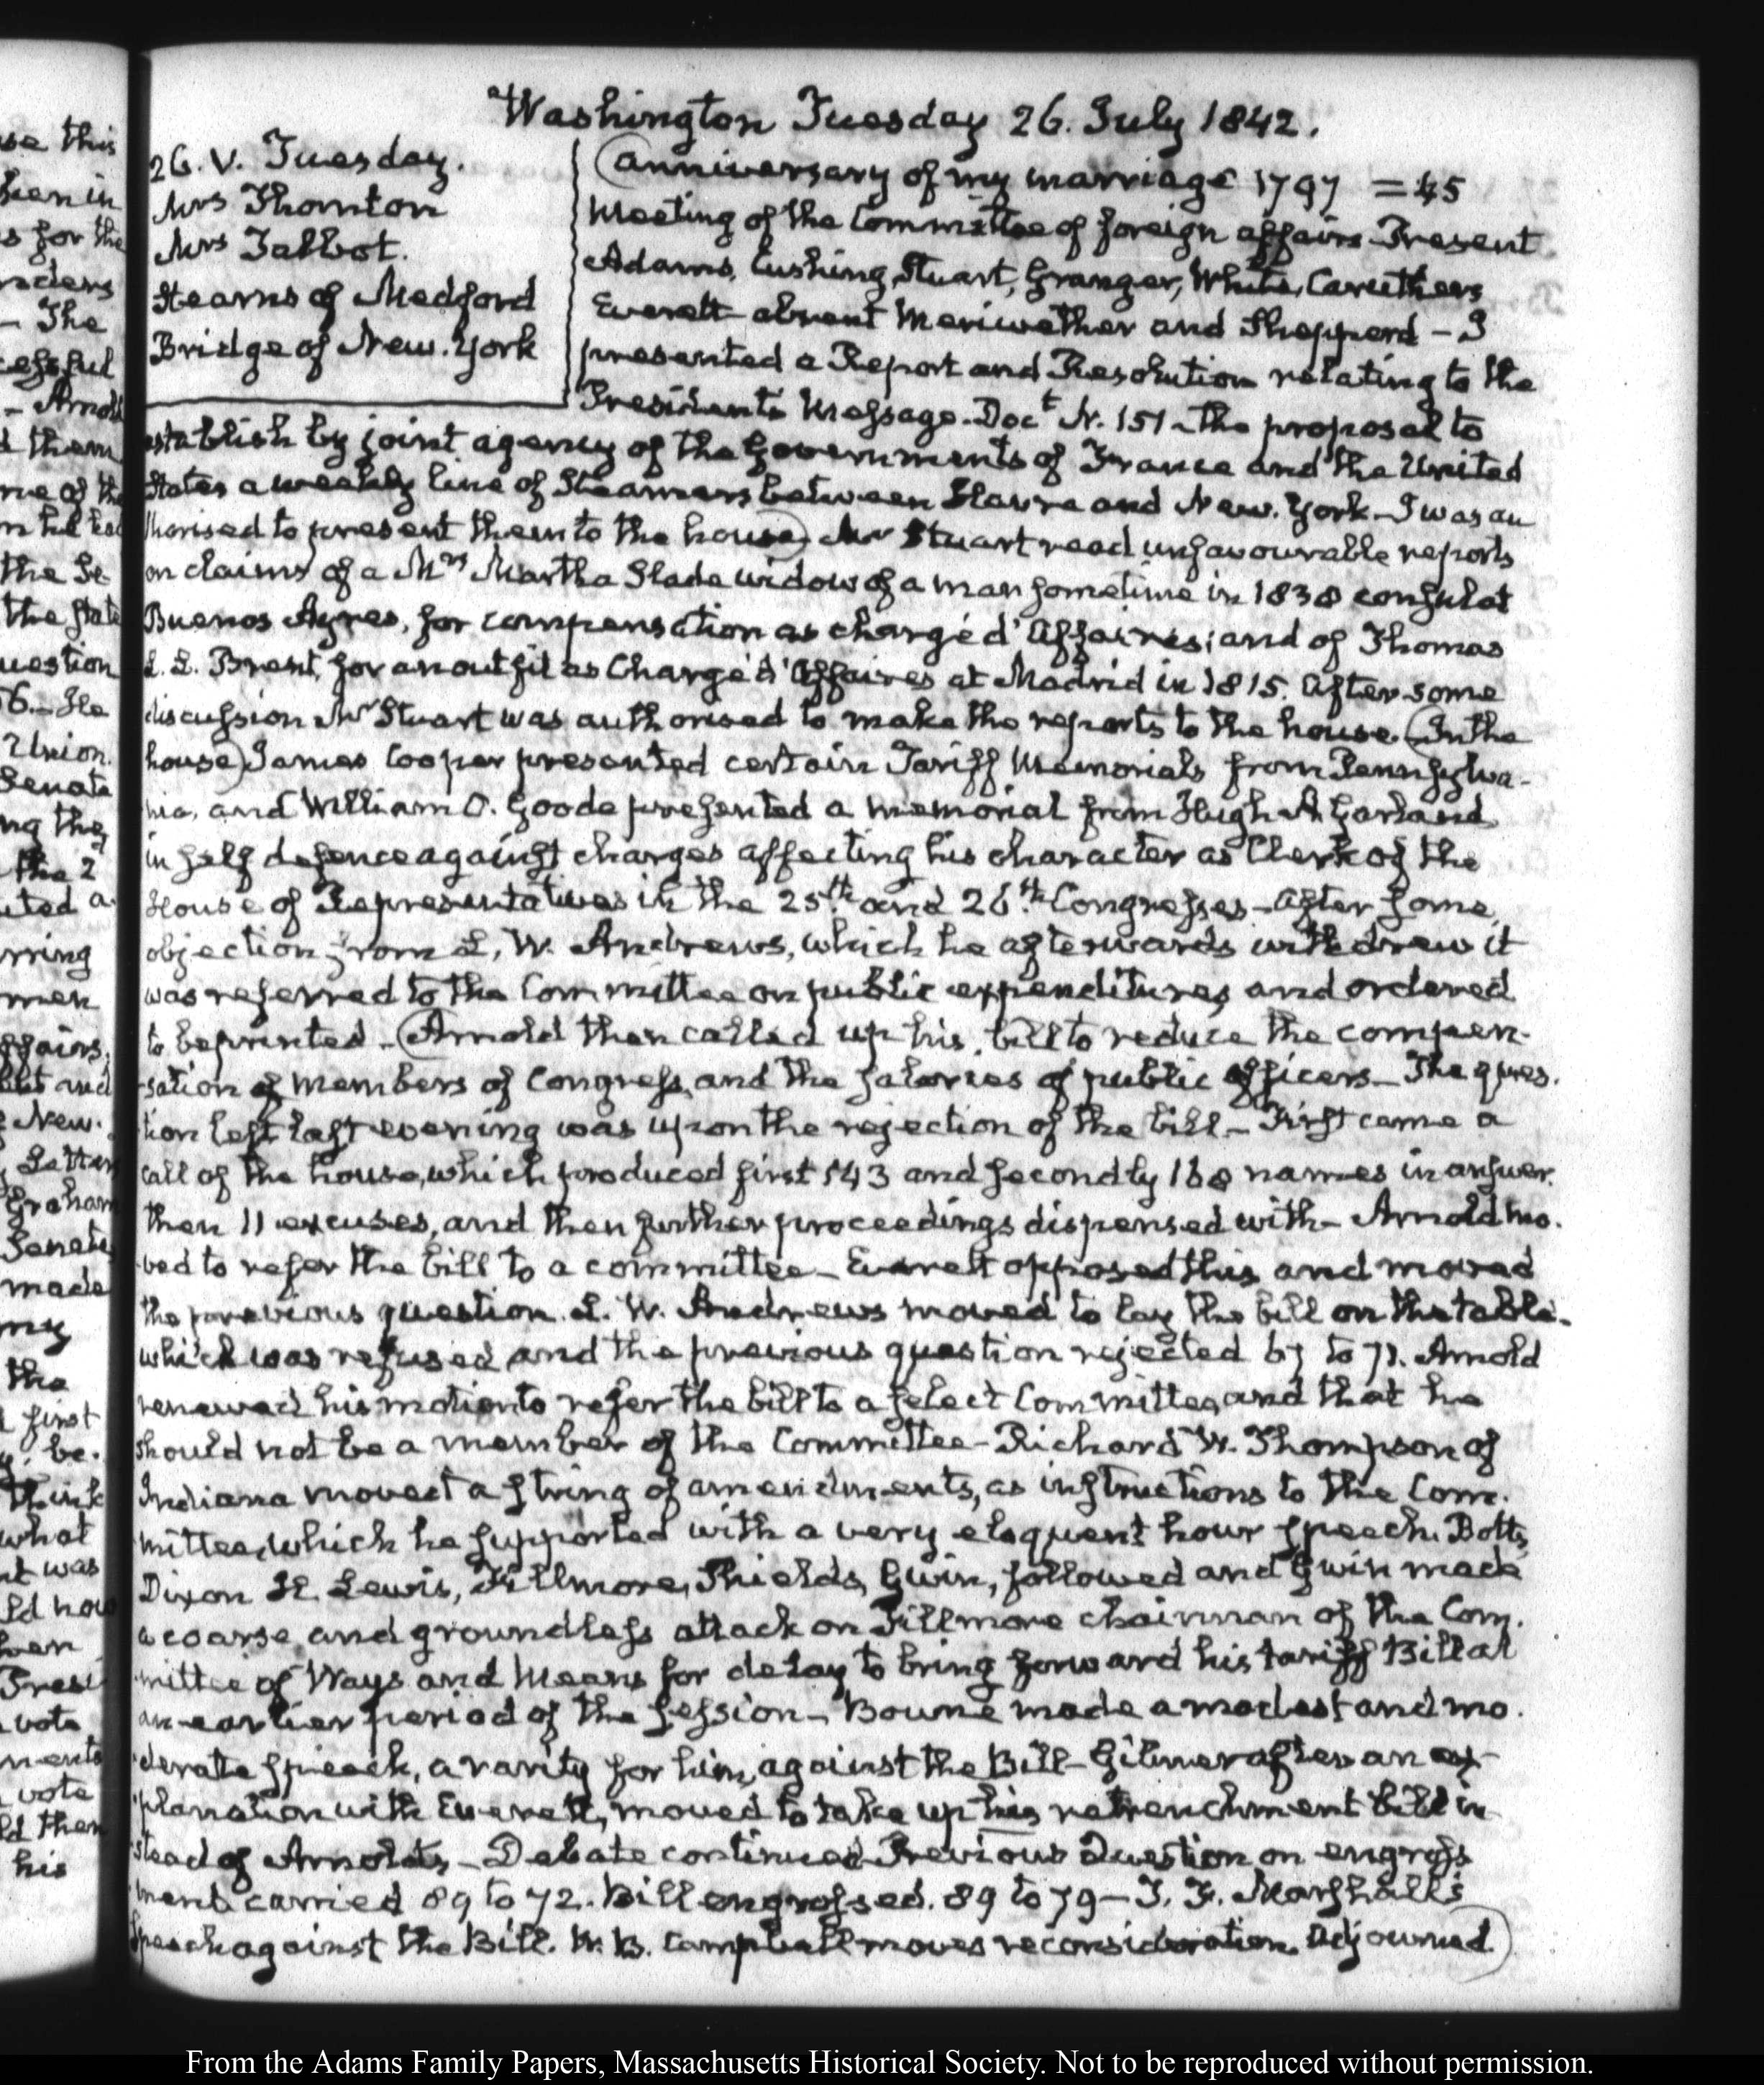 Washington Tuesday 26. July 1842.
26. V. Tuesday.
Mrs Thornton
Mrs Talbot.
Stearns of Medford
Bridge of New. York
(Anniversary of my marriage 1797 = 45
Meeting of the Committee of foreign affairs Present
Adams, Cushing, Stuart, Granger, White, Caruthers
Everett absent Meriwether and Shepperd – I
presented a Report and Resolution relating to the
Presidents Message. Doct. N. 151 – the proposal to
establish by joint agency of the Governments of France and the United
States a weekly line of Steamers between Havre and New. York – I was au
thorised to present them to the house) Mr Stuart read unfavourable reports
on claims of a Mrs Martha Slade widow of a man sometime in 1838 consul at
Buenos Ayres, for compensation as chargé d'Affaires; and of Thomas
L. L. Brent, for an outfit as Chargé d'Affaires at Madrid in 1815. After some
discussion Mr Stuart was authorised to make the reports to the house. (In the
house) James Cooper presented certain Tariff Memorials from Pennsylva-
nia, and William O. Goode presented a memorial from Hugh A. Garland
in self defence against charges affecting his character as Clerk of the
House of Representatives in the 25th. and 26th. Congresses – After some
objection from L. W. Andrews, which he afterwards withdrew it
was referred to the Committee on public expenditures, and ordered
to be printed – (Arnold then called up his bill to reduce the compen-
sation of members of Congress, and the salaries of public officers – The ques.
tion left last evening was upon the rejection of the bill – First came a
call of the house, which produced first 143 and secondly 168 names in answer.
then 11 excuses, and then further proceedings dispensed with – Arnold mo.
ved to refer the bill to a committee – Everett opposed this and moved
the previous question. L. W. Andrews moved to lay the bill on the table.
which was refused and the previous question rejected 67 to 71. Arnold
renewed his motion to refer the bill to a select Committee, and that he
should not be a member of the Committee – Richard W. Thompson of
Indiana moved a string of amendments, as instructions to the Com.
mittee, which he supported with a very eloquent hour speech. Botts,
Dixon H. Lewis, Fillmore, Shields, Gwin, followed and Gwin made
a coarse and groundless attack on Fillmore chairman of the Com.
mittee of Ways and Means for delay to bring forward his tariff Bill at
an earlier period of the Session – Bowne made a modest and mo.
derate speech, a rarity for him, against the Bill – Gilmer after an ex-
planation with Everett, moved to take up his retrenchment bill in
stead of Arnold's – Debate continued Previous Question on engross
ment carried 89 to 72. Bill engrossed. 89 to 79 – T. F. Marshall's
speech against the Bill. W. B. Campbell moves reconsideration. Adjourned.)
From the Adams Family Papers, Massachusetts Historical Society. Not to be reproduced without permission.